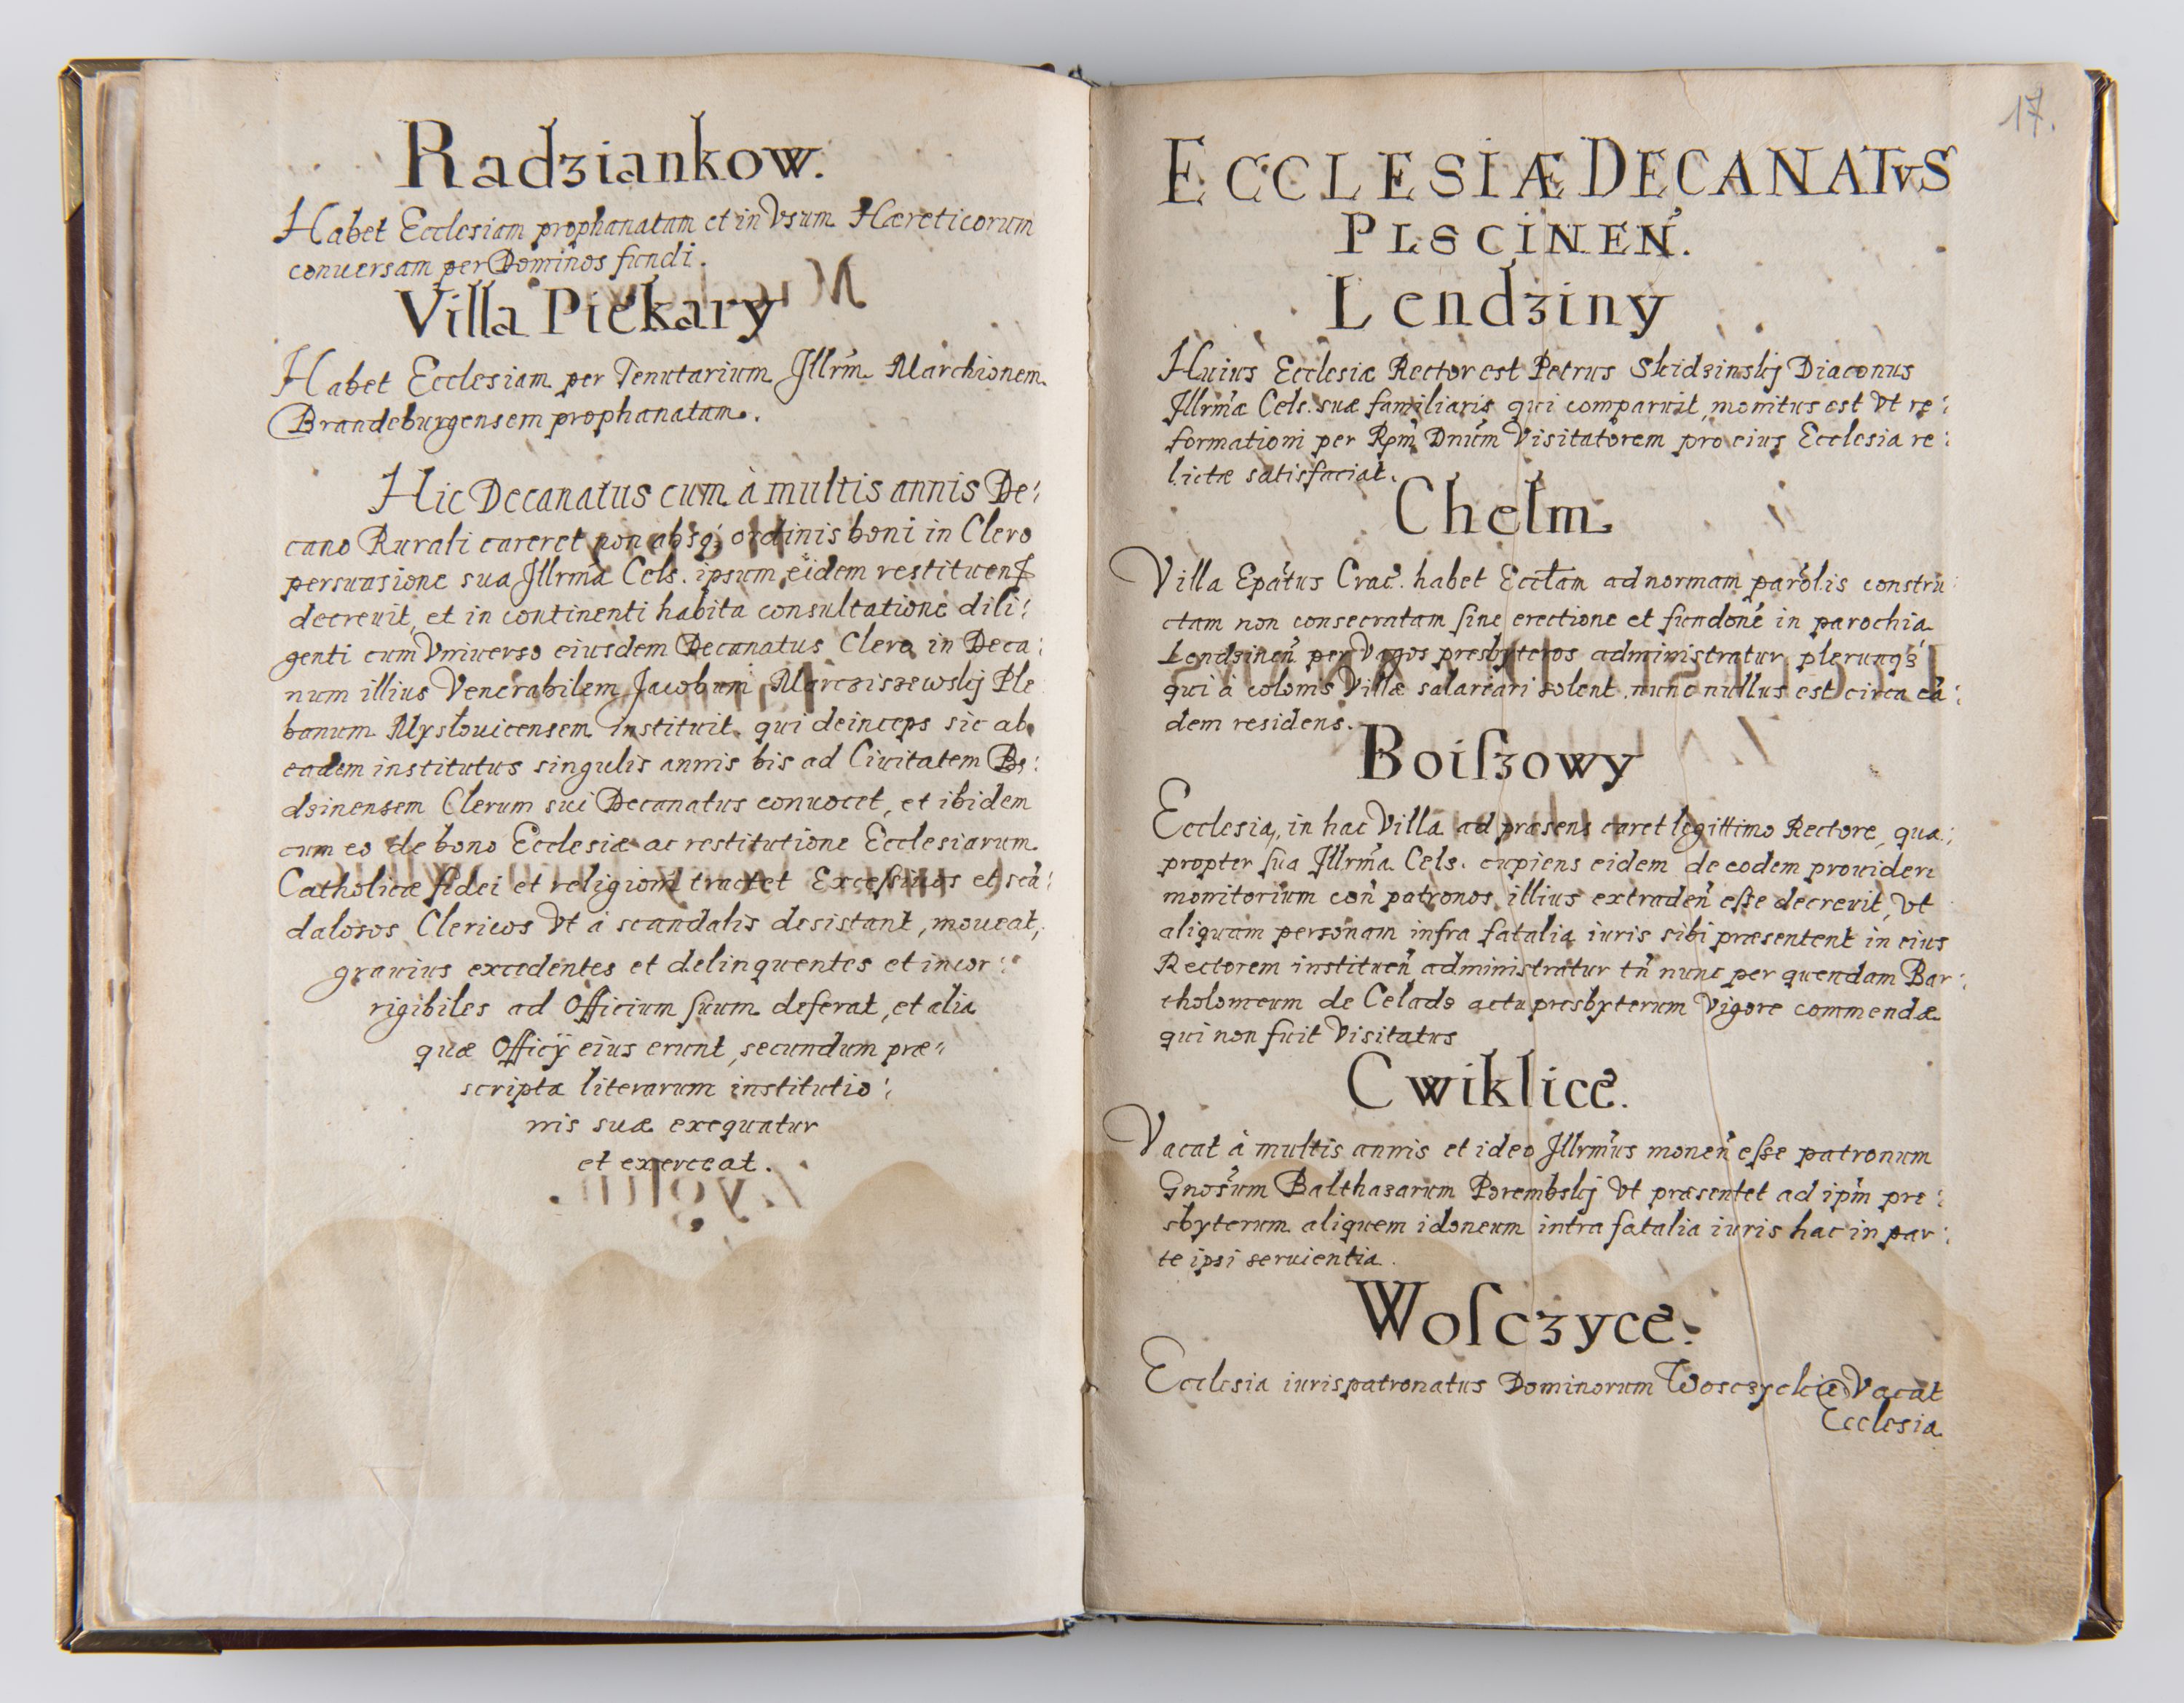 Radziankow.
Habet Ecclesiam prophanatam et in Vsum Hæreticorum
conuersam per Dominos fundi.
Villa Piekary
Habet Ecclesiam per Tenutarium Jllrm̃ Marchionem
Brandeburgensem prophanatam.
Hic Decanatus cum à multis annis De:
cano Rurali careret non absq; ordinis boni in Clero
persuasione sua Jllrma Cels. ipsum eidem
decreuit, et in continenti habita consultatione dili:
genti cum Vniuerso eiusdem Decanatus Clero in Deca:
num illius Venerabilem Jacobum Marcziszewskj Ple
banum Mysłouicensem instituit. qui deinceps sic ab
eadem institutus singulis annis bis ad Ciuitatem Be:
dzinensem Clerum sui Decanatus conuocet, et ibidem
cum eo de bono Ecclesiæ ac restitutione Ecclesiarum
Catholicæ fidei et religioni tractet Exceſsiuos et scã:
dalosos Clericos Vt à scandalis desistant, moueat,
grauius excedentes et delinquentes et incor:
rigibiles ad Officium ſuum deferat, et alia
quæ Officÿ eius erunt, secundum præ:
scripta literarum institutio:
nis suæ exequatur
et exerceat.
17.
ECCLESIÆ DECANATvS
PLSCINEÑ.
Lendziny
Huius Ecclesiæ Rector est Petrus Skidzinskj Diaconus
Jllrmæ Cels. suæ familiaris qui comparuit, monitus est Vt re:
formationi per Rṕm Dnũm Visitatorem pro eius Ecclesia re:
lictæ satisfaciat.
Chelm
Villa Epãtus Crac̃. habet Eccłam ad normam parolis constru:
ctam non consecratam ſine erectione et fundoñe in parochia
Lendzineñ per Vagos presbyteros administratur plerunq;
qui à colonis Villæ salariari solent. nunc nullus est circa eã:
dem residens.
Boiſzowy
Ecclesia, in hac Villa ad præsens caret legittimo Rectore, qua:
propter ſua Jllrma Cels. cupiens eidem de eodem prouideri
monitorium coñ patronos illius extradeñ eſse decreuit, Vt
aliquam personam infra fatalia iuris sibi præsentent in eius
Rectorem institueñ administratur tñ nunc per quendam Bar:
tholomeum de Celado actu presbyterum Vigore commendæ
qui non fuit Visitatus
Cwiklice.
Vacat à multis annis et ideo Jllrmus moneñ eſse patronum
Gnosũm Balthazarum Porembskj Vt præsentet ad ipm̃ pre:
sbyterum aliquem idoneum intra fatalia iuris hac in par:
te ipsi seruientia.
Wolczyce.
Ecclesia iurispatronatus Dominorum Vacat
Ecclesia